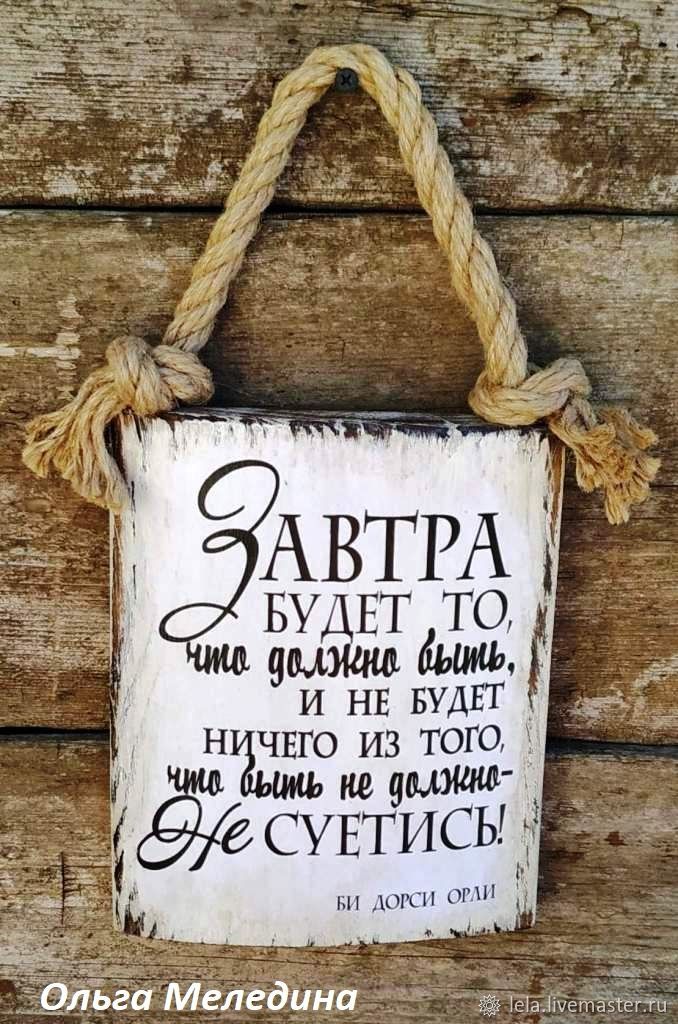 Завтра
будет то,
что должно быть,
и не будет
ничего из того,
что быть не должно-
Не суетись!
Би Дорси Орли
Ольга Меледина
lela.livemaster.ru